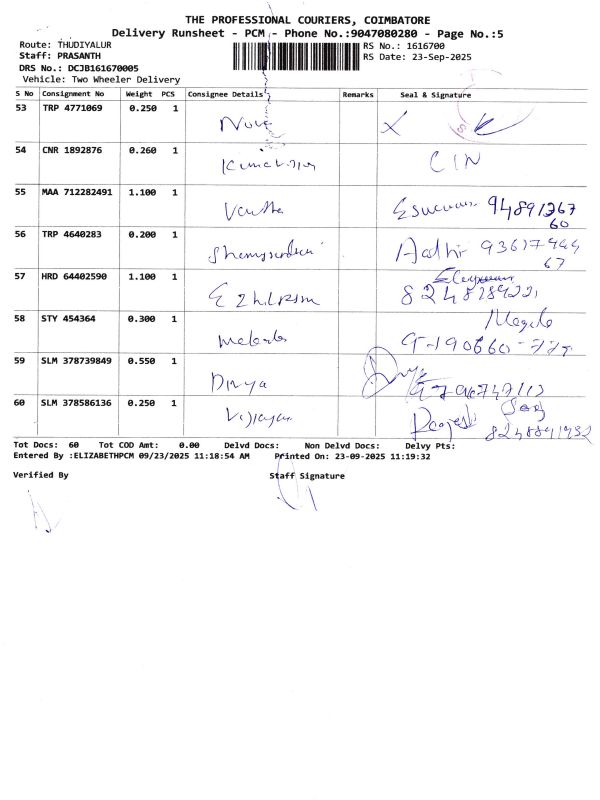 THE PROFESSIONAL COURIERS, COIMBATORE
Delivery Runsheet - PCM - Phone No.:9047080280 - Page No.:5
Route: THUDIYALUR
RS No.: 1616700
Staff: PRASANTH
RS Date: 23-Sep-2025
DRS No.: DCJB161670005
Vehicle: Two Wheeler Delivery
S No Consignment No Weight PCS Consignee Details Remarks Seal & Signature
53 TRP 4771069 0.250 1
54 CNR 1892876 0.260 1 CIN
55 MAA 712282491 1.100 1
56 TRP 4640283 0.200 1 Aadhi
57 HRD 64402590 1.100 1
58 STY 454364 0.300 1
59 SLM 378739849 0.550 1 Divya
60 SLM 378586136 0.250 1 Vijayan
Tot Docs: 60 Tot COD Amt: 0.00 Delvd Docs: Non Delvd Docs: Delvy Pts:
Entered By :ELIZABETHPCM 09/23/2025 11:18:54 AM Printed On: 23-09-2025 11:19:32
Verified By Staff Signature